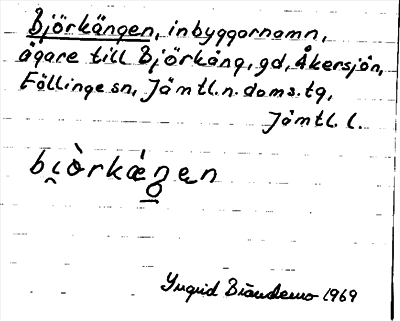 Björkängen, inbyggarnamn,
ägare till Björkäng, gd, Åkersjön,
Föllinge sn, Jämtl. n. doms. tg,
Jämtl. l.
bi̯òrkǽng̲en
Ingrid Brändemo 1969